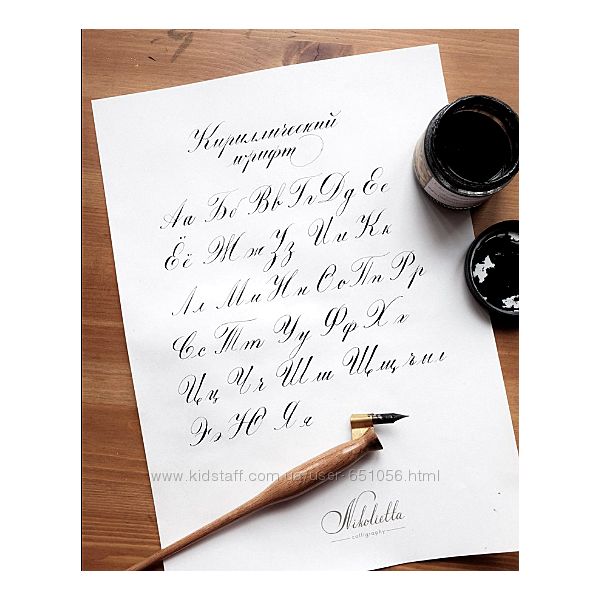 Кириллический
шрифт
Аа Бб Вв Гг Дд Ее
Ёё Жж Зз Ии Кк
Лл Мм Нн Оо Пп Рр
Сс Тт Уу Фф Хх
Цц Чч Шш Щщ ъ ы ь
Ээ Ю Яя
www.kidstaff.com.ua/user-651056.html
Nikolietta
calligraphy